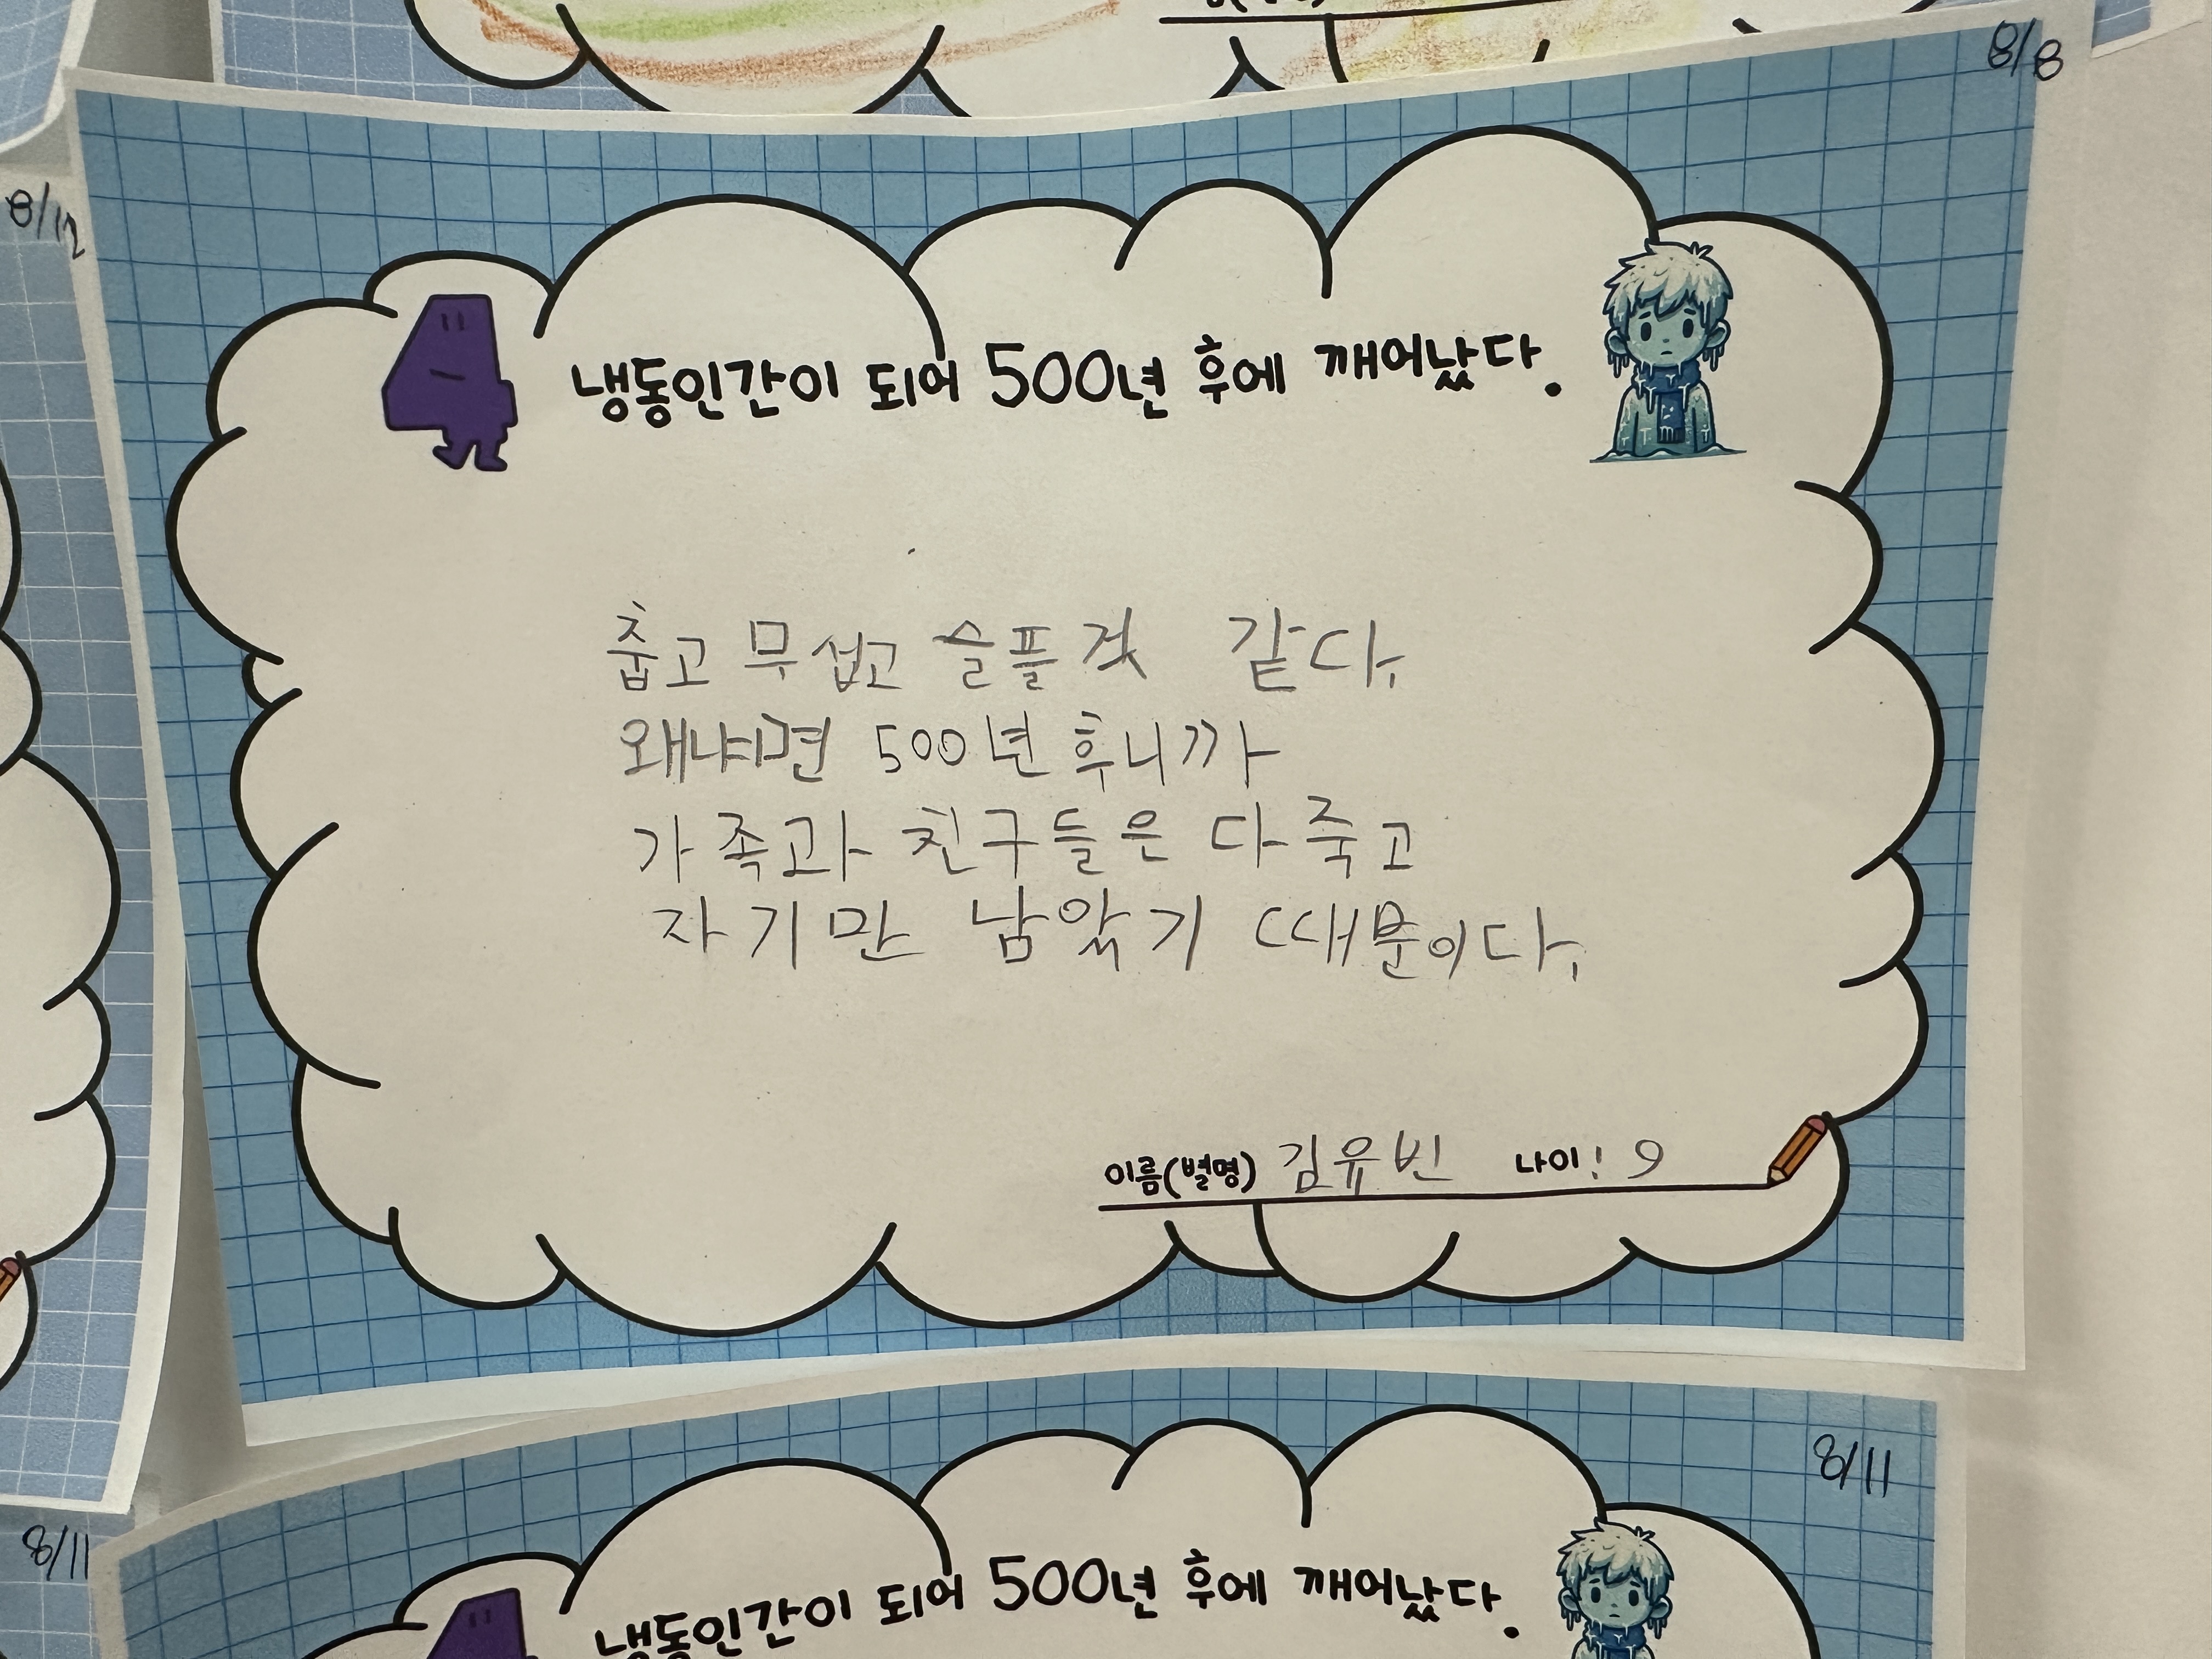 8/8
8/12
냉동인간이 되어 500년 후에 깨어났다.
춥고 무섭고 슬플것 같다.
왜냐면 500년 후니까
가족과 친구들은 다 죽고
자기만 남았기 때문이다.
이름(별명) 김유빈 나이! 9
8/11
8/11
냉동인간이 되어 500년 후에 깨어났다.